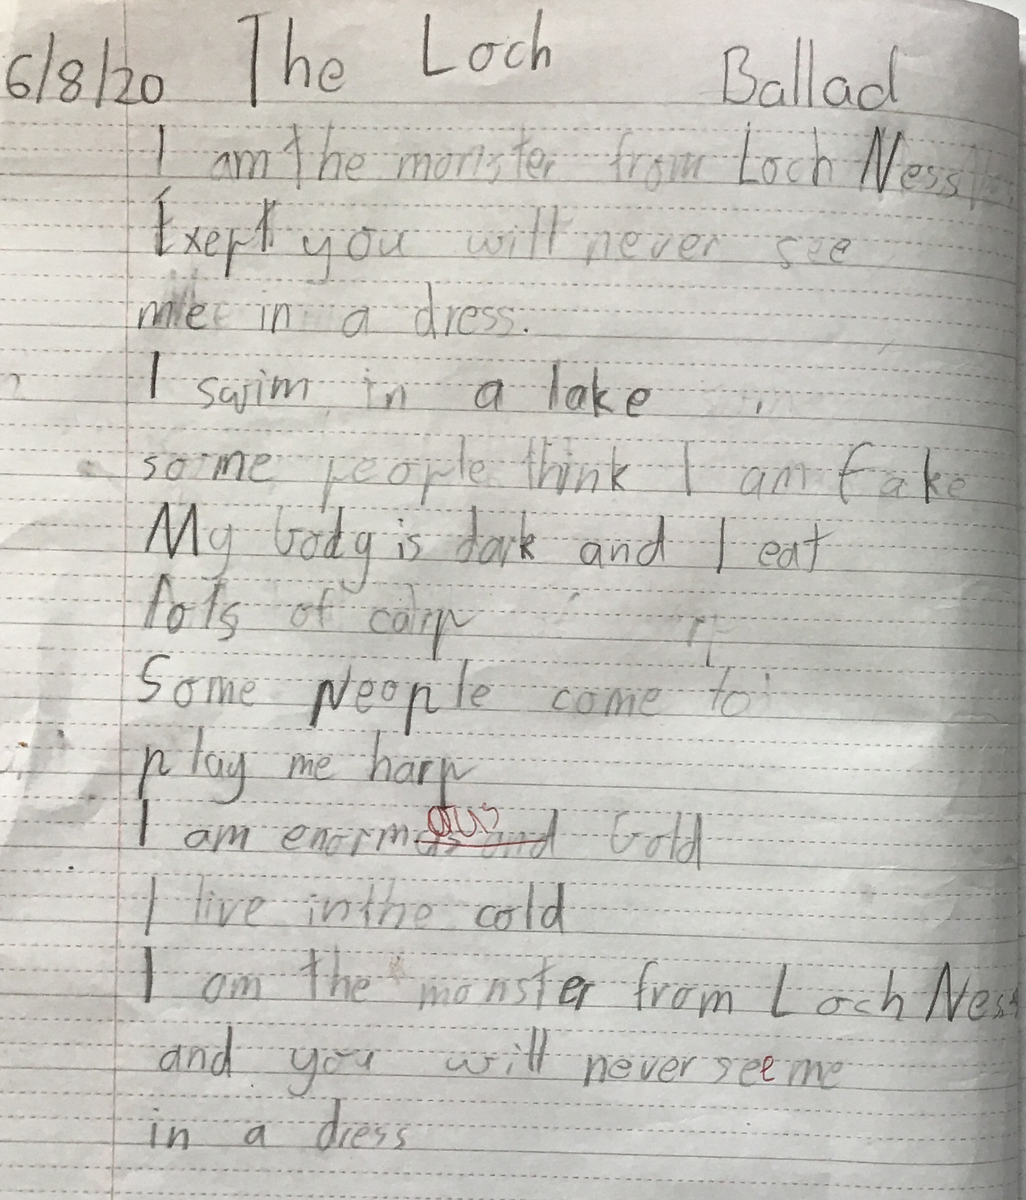 6/8/20 The Loch Ballad
I am the monster from Loch Ness
Exept you will never see
me in a dress.
I swim in a lake
some people think I am fake
My body is dark and I eat
lots of carp
Some people come to
play me harp
I am enormous and bold
I live in the cold
I am the monster from Loch Ness
and you will never see me
in a dress